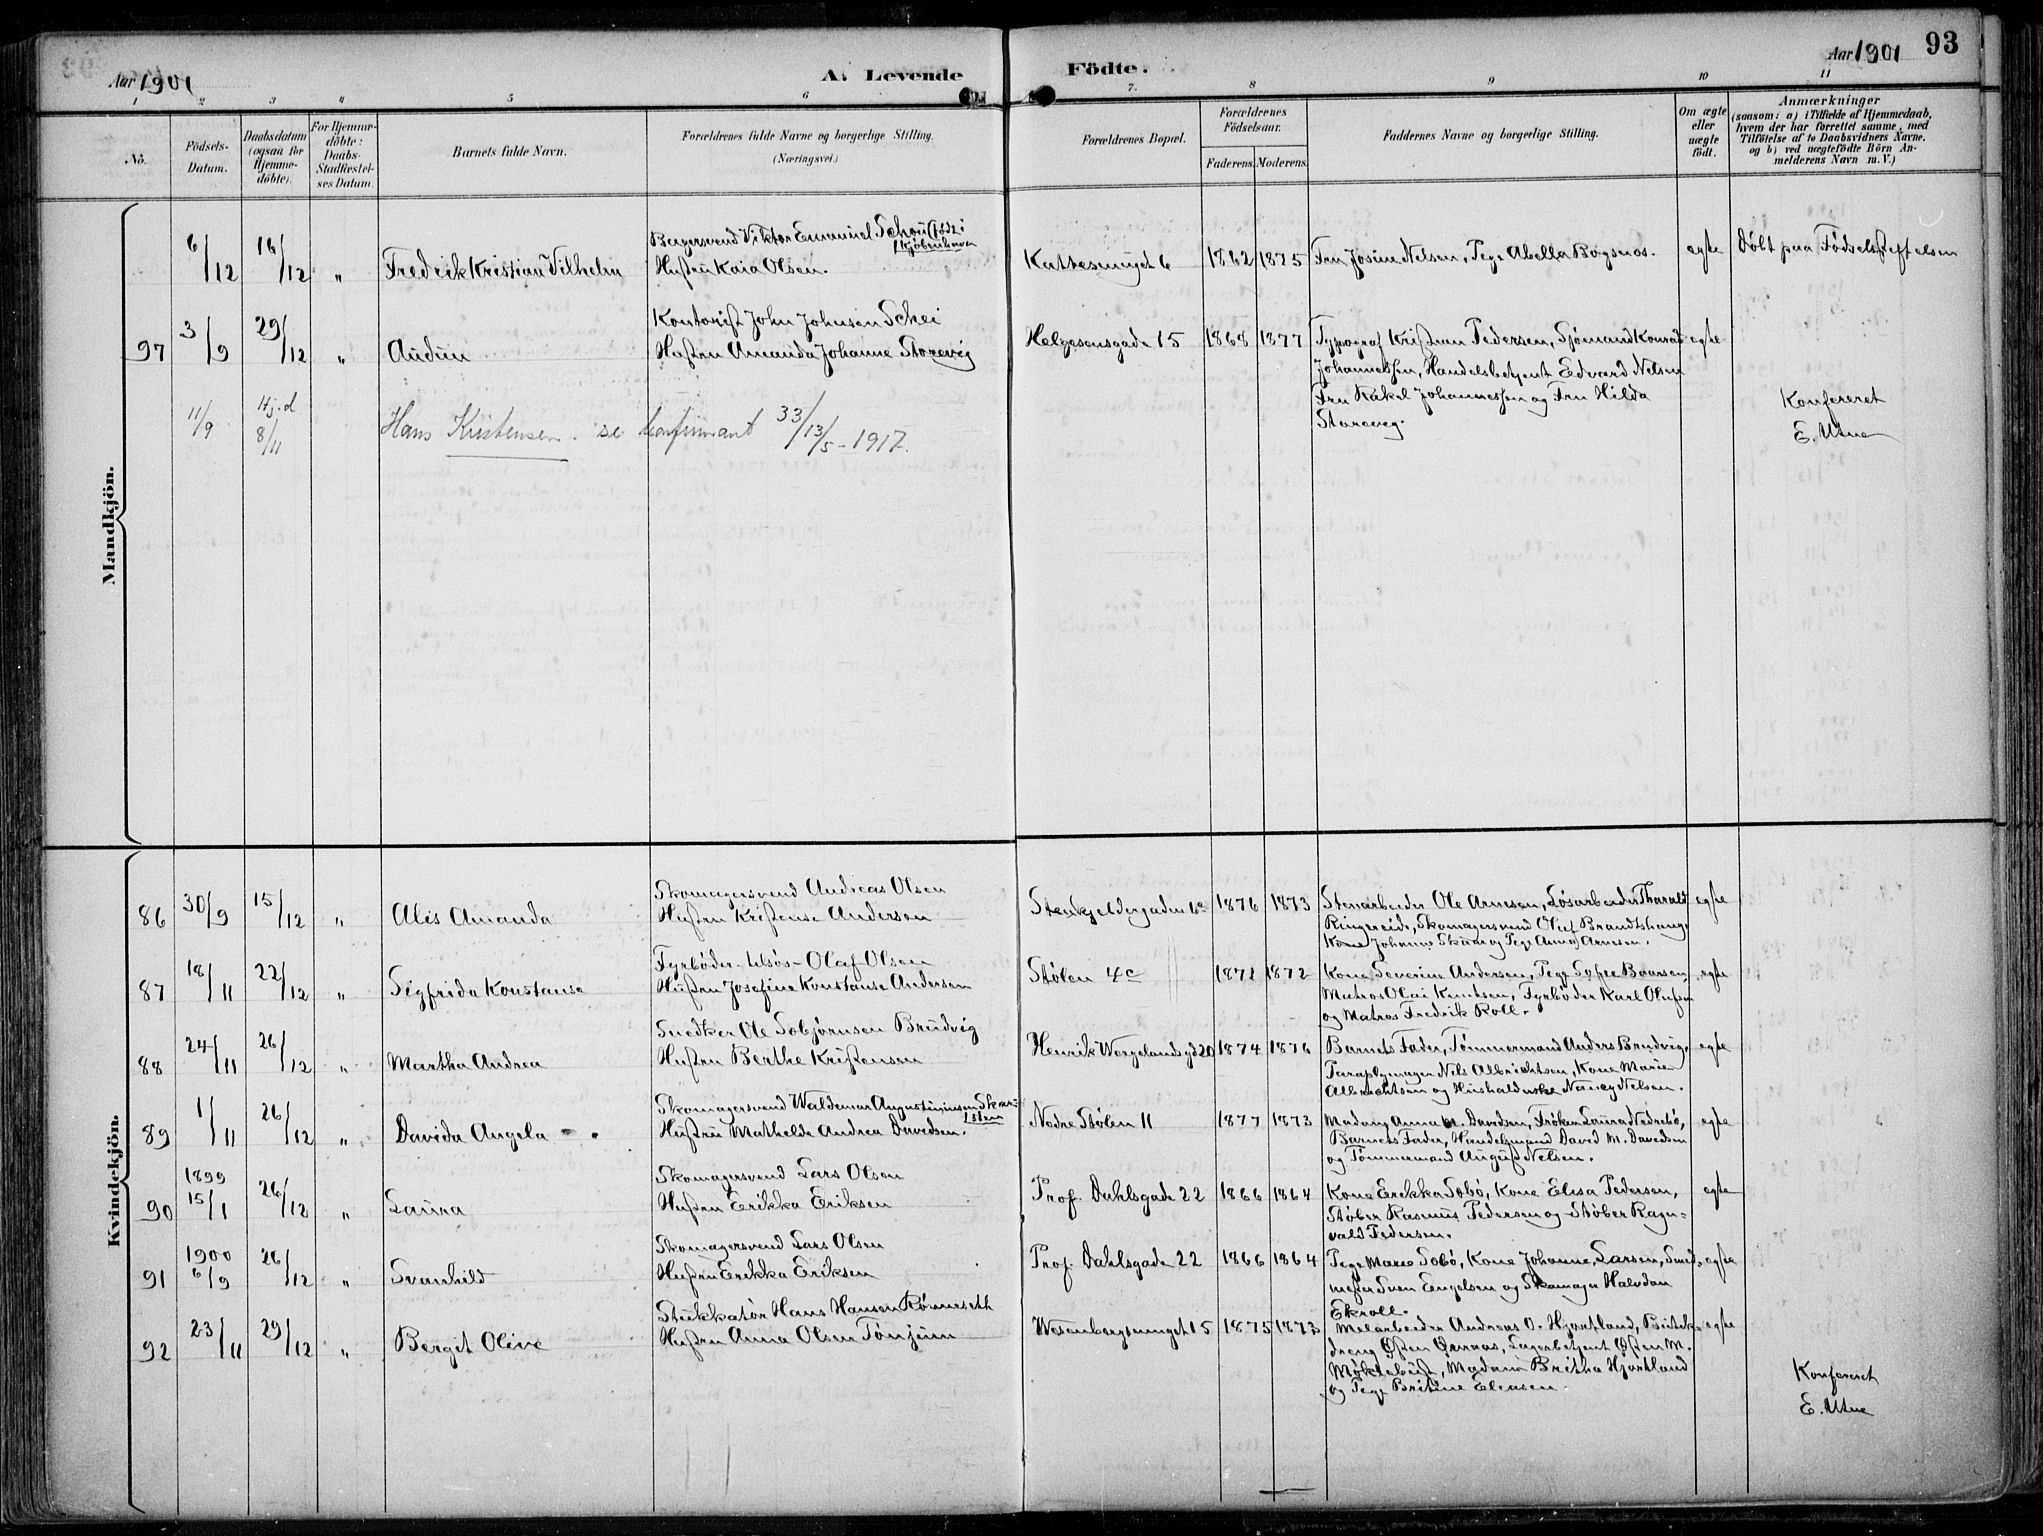 Aar 1901
A. Levende Födte.
Aar 1901
93
1 2 3 4 5 6 7. 8 9 10 11
No.
Födsels-Datum.
Daabsdatum (ogsaa for Hjemme-döbte).
For Hjemme-döbte: Daabs-Stadfæstel-ses Datum.
Barnets fulde Navn.
Forældrenes fulde Navne og borgerlige Stilling.
(Næringsvei.)
Forældrenes Bopæl.
Forældrenes Födselsaar.
Faderens. Moderens.
Faddernes Navne og borgerlige Stilling.
Om ægte eller uægte födt.
Anmærkninger
(saasom: a) i Tilfælde af Hjemmedaab, hvem der har forrettet samme, med Tilföielse af to Daabsvidners Navne. og b) ved uægtefödte Börn An-melderens Navn m. V.)
Mandkjön.
6/12 16/12 " Fredrik Kristian Vilhelm
Bagersvend Viktor Emanuel Schou (født i Kjøbenhavn
Hustru Kaia Olsen.
Kattesmuget 6 1862 1875 Fru Josine Nelsen, Pige Abella Bognøs. egte Døbt paa Fødselsstiftelsen
97 3/9 29/12 " Audun
Kontorist John Johnsen Schei
Hustru Amanda Johanne Storevig
Helgesensgade 15 1868 1877 Typograf Kristian Pedersen, Sjømand Konrad egte
Johannessen, Handelsbetjent Edvard Nelsen
Fru Rakel Johannessen og Fru Hilda
Storevig.
Konfereret
E. Utne
11/9 Hj.d 8/11 Hans Kristensen. se konfirmant 33/13/5-1917.
Kvindekjön.
86 30/9 15/12 " Alis Amanda
Skomagersvend Andreas Olsen
Hustru Kristense Andersen
Stenkjeldergaden 6c 1876 1873 Stenarbeider Ole Arnesen, Løsarbeider Tharald egte
Ringereide, Skomagersvend Oluf Brandtshaug,
Kone Johanne Skaar og Pige Anna Arnesen.
87 18/11 22/12 " Sigfrida Konstanse
Fyrbøder-tilsøs-Olaf Olsen
Hustru Josefine Konstanse Andersen
Stølen 4c 1872 1872 Kone Severine Andersen, Pige Sofie Baarsen egte
Matros Olai Knutsen, Fyrbøder Karl Olufsen
og Matros Fredrik Roll.
88 24/11 26/12 " Martha Andrea
Snedker Ole Sobjørnsen Brudvig
Hustru Berthe Kristensen
Henrik Wergelands gd 20 1874 1876 Barnets Fader, Tømmermand Anders Brudvig, egte
Paraplymager Nils Albrichtsen, Kone Marie
Albrechtsen og Husholderske Nancy Nelsen.
89 1/11 26/12 " Davida Angela
Skomagersvend Waldemar Augustinussen
Hustru Mathelde Andrea Davidsen.
Nedre Stølen 11 1877 1873 Madam Anna M. Davidsen, Frøken Laura Nedrebø, egte
Barnets Fader, Handelsmand David M. Davidsen
og Tømmermand August Nelsen.
90 1899 15/1 26/12 " Laura
Skomagersvend Lars Olsen
Hustru Erikka Eriksen
Prof. Dahlsgade 22 1866 1864 Kone Erekka Sobø, Kone Elisa Pedersen, egte
Støber Rasmus Pedersen og Støber Ragn-
vald Pedersen.
91 1900 6/9 26/12 " Svanhild
Skomagersvend Lars Olsen
Hustru Erikka Eriksen
Prof. Dahlsgade 22 1866 1864 Pige Marie Sobø, Kone Johanne Larsen, Smed- egte
mester Sven Engelsen og Skomager Halvdan
Ekroll.
92 23/11 29/12 " Bergit Olive
Stukkatør Hans Hansen Rønneseth
Hustru Anna Olsen Tønjum
Wesenbergsmuget 15 1875 1873 Melarbeider Andreas O. Hjortland, Butik- egte
dreng Østen Ørnaas, Lagerbetjent Østen M.
Møklebust, Madam Britha Hjortland
og Pige Britine Elensen.
Konfereret
E. Utne